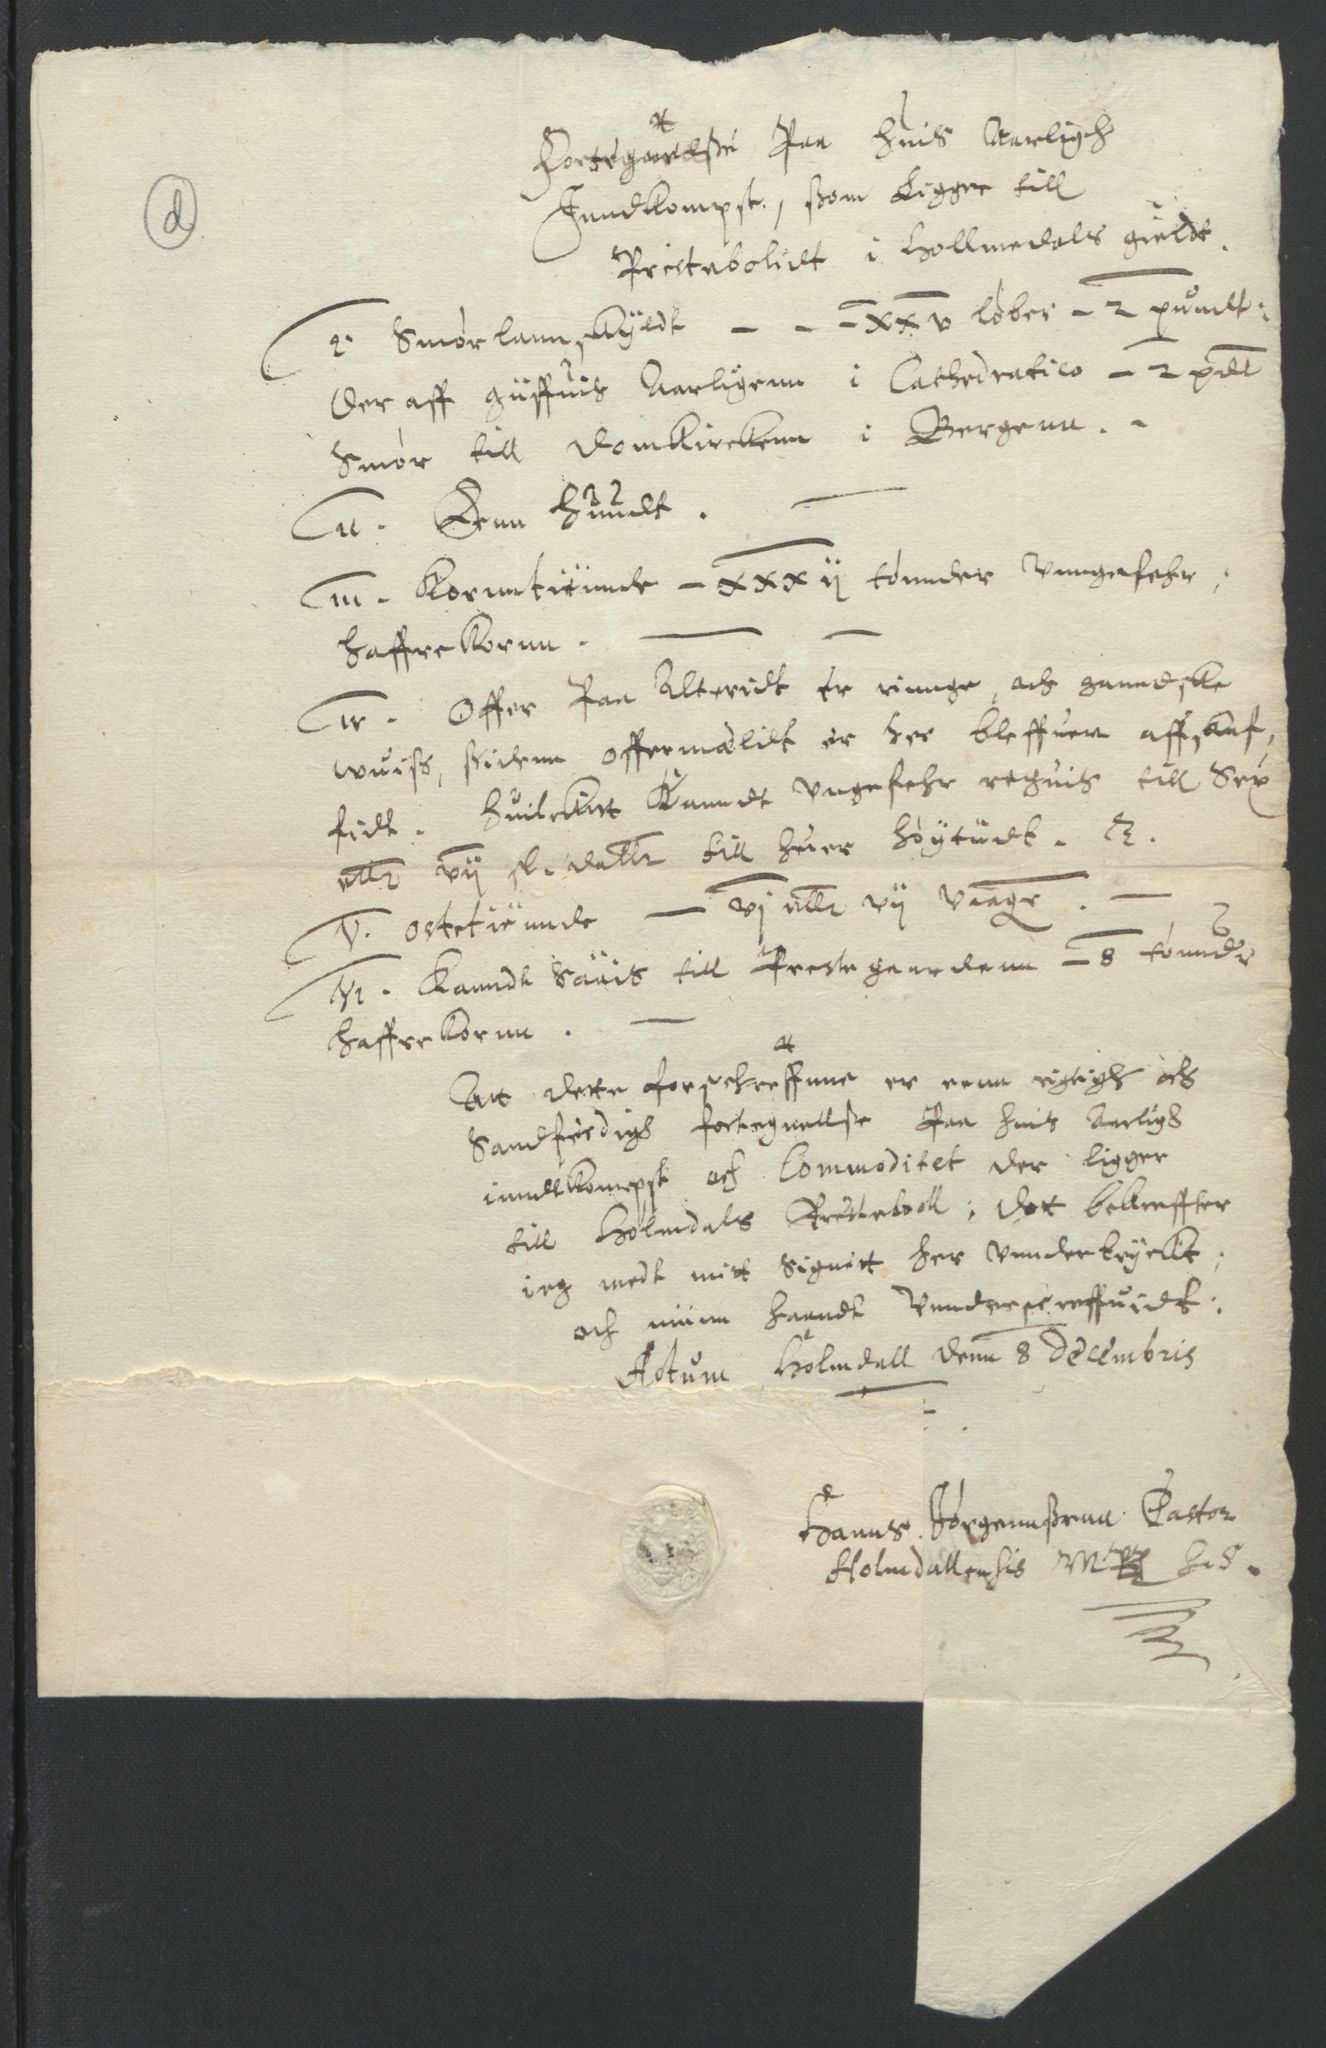 d
Fortegnelse Paa huis Aarligh
Inndkompst, som Ligger till
Prestebolidt i Hollmedals gieldt.
I. Smør lannskyldt - - - xxv løber - 2 pundt.
Der aff giffuis Aarligenn i Cathedratico - 2 pdt
Smør till Domkirckenn i Bergenn. -
II. Jenn hundt.
III. Kornntiiunde - xxxij tønnder Vungefehr,
haffrekornn.
IV. Offer Paa Alteridt er ringe, och ganndske
wuiss, sidenn offermalidt er her bleffuen affskaf,
fidt. Huilckitt Kanndt Vngefehr regnis till Sex
eller vij sl. daller till huer høytiidt. &.
V. Ostetiiunde - vj eller vij Vaager.
VI. Kanndt Saais till Prestegaardenn - 8 tønnder
haffrekornn.
Att dette forschreffnne er enn rigtigh och
Sandferdigh fortegnellse Paa huis Aarligh
inndkompst och Commoditet der ligger
till Holmdals Prestebooll; Dett bekreffter
ieg medt mitt Signett her Vunder tryckt,
och minn haandt Vunderscreffuidt.
Actum Holmdall denn 8 Decembris
Hanns Jørgennssenn Pastor
Holmdallensis